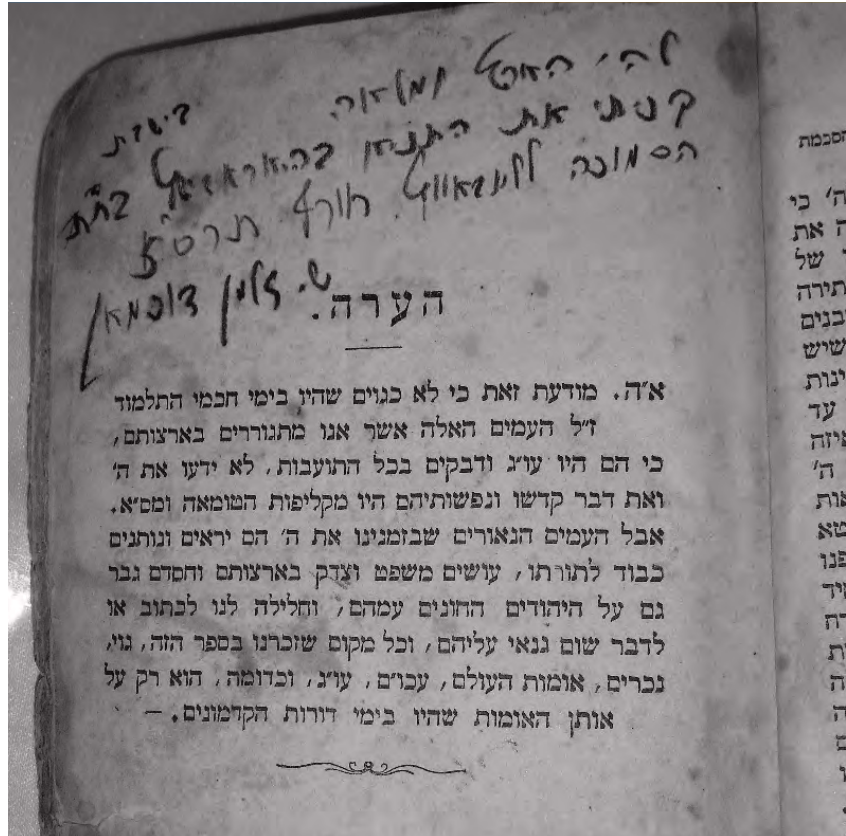 לה' הארץ ומלואה
בישיבת
קניתי את התניא
הסמוכה לליובאוויץ חורף תרס"ז
ש. זלמן דוכמאן
הערה.
א"ה. מודעת זאת כי לא כגוים שהיו בימי חכמי התלמוד
ז"ל העמים האלה אשר אנו מתגוררים בארצותם,
כי הם היו עו"ג ודבקים בכל התועבות, לא ידעו את ה'
ואת דבר קדשו ונפשותיהם היו מקליפות הטומאה ומס"א.
אבל העמים הנאורים שבזמנינו את ה' הם יראים ונותנים
כבוד לתורתו, עושים משפט וצדק בארצותם וחסדם גבר
גם על היהודים החונים עמהם, וחלילה לנו לכתוב או
לדבר שום גנאי עליהם, וכל מקום שזכרנו בספר הזה, גוי,
נכרים, אומות העולם, עכו"ם, עו"ג, וכדומה, הוא רק על
אותן האומות שהיו בימי דורות הקדמונים. —
הסכמת
ה' כי
את
של
שיש
עד
ה'